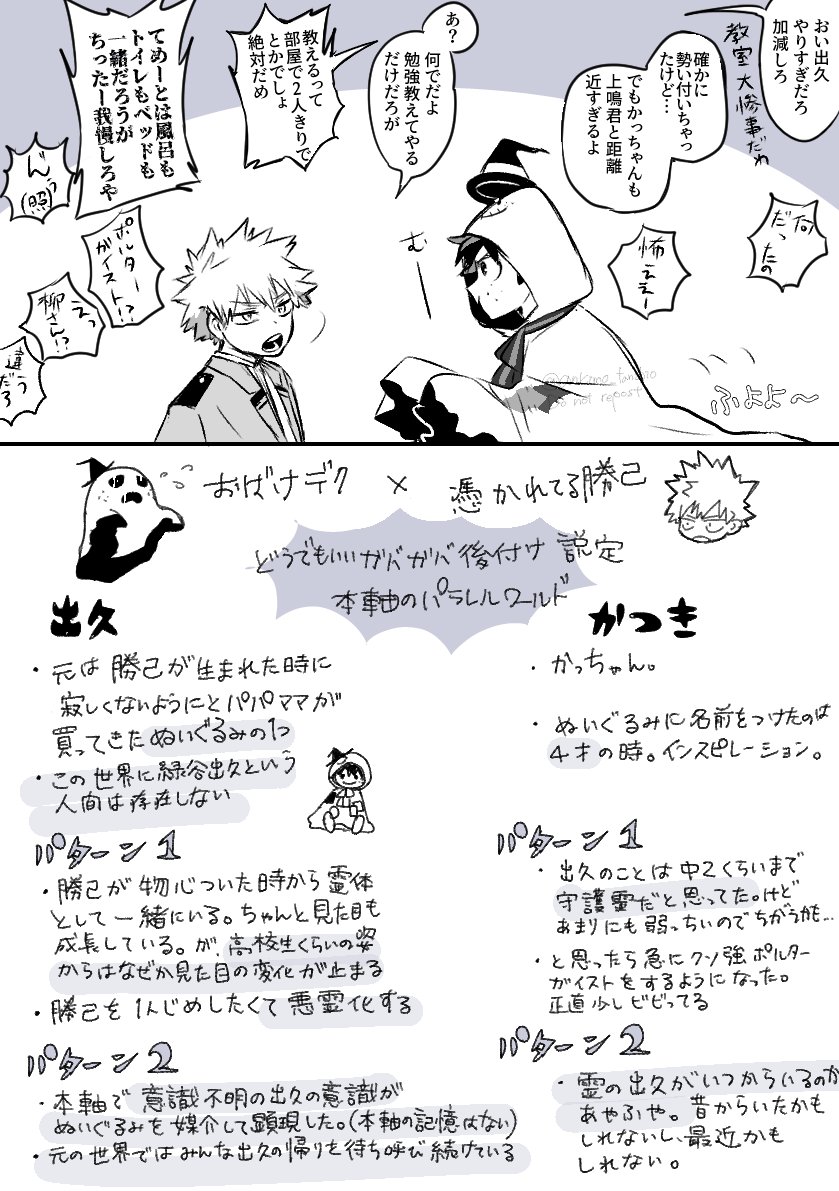 おい出久
やりすぎだろ
加減しろ
教室大惨事だわ
確かに
勢い付いちゃっ
たけど…
でもかっちゃんも
上鳴君と距離
近すぎるよ
あ?
何でだよ
勉強教えてやる
だけだろが
教えるって
部屋で2人きりで
とかでしょ
絶対だめ
てめーとは風呂も
トイレもベッドも
一緒だろうが
ちったー我慢しろや
(照)
何
だったの
怖ええー
む
ポルター
ガイスト!?
えっ
柳さん!?
違う
だろ
ふよよ〜
do not repost
おばけデク × 憑かれてる勝己
どうでもいいガバガバ後付け説定
本軸のパラレルワールド
出久
・元は勝己が生まれた時に
寂しくないようにとパパママが
買ってきたぬいぐるみの1つ
・この世界に緑谷出久という
人間は存在しない
パターン1
・勝己が物心ついた時から霊体
として一緒にいる。ちゃんと見た目も
成長している。が、高校生くらいの姿
からはなぜか見た目の変化が止まる
・勝己を1人じめしたくて悪霊化する
パターン2
・本軸で意識不明の出久の意識が
ぬいぐるみを媒介して顕現した。(本軸の記憶はない)
・元の世界ではみんな出久の帰りを待ち呼び続けている
かつき
・かっちゃん。
・ぬいぐるみに名前をつけたのは
4才の時。インスピレーション。
パターン1
・出久のことは中2くらいまで
守護霊だと思ってた。けど
あまりにも弱っちいのでちがうかも…
・と思ったら急にクソ強ポルター
ガイストをするようになった。
正直少しビビってる
パターン2
・霊の出久がいつからいるのか
あやふや。昔からいたかも
しれないし、最近かも
しれない。